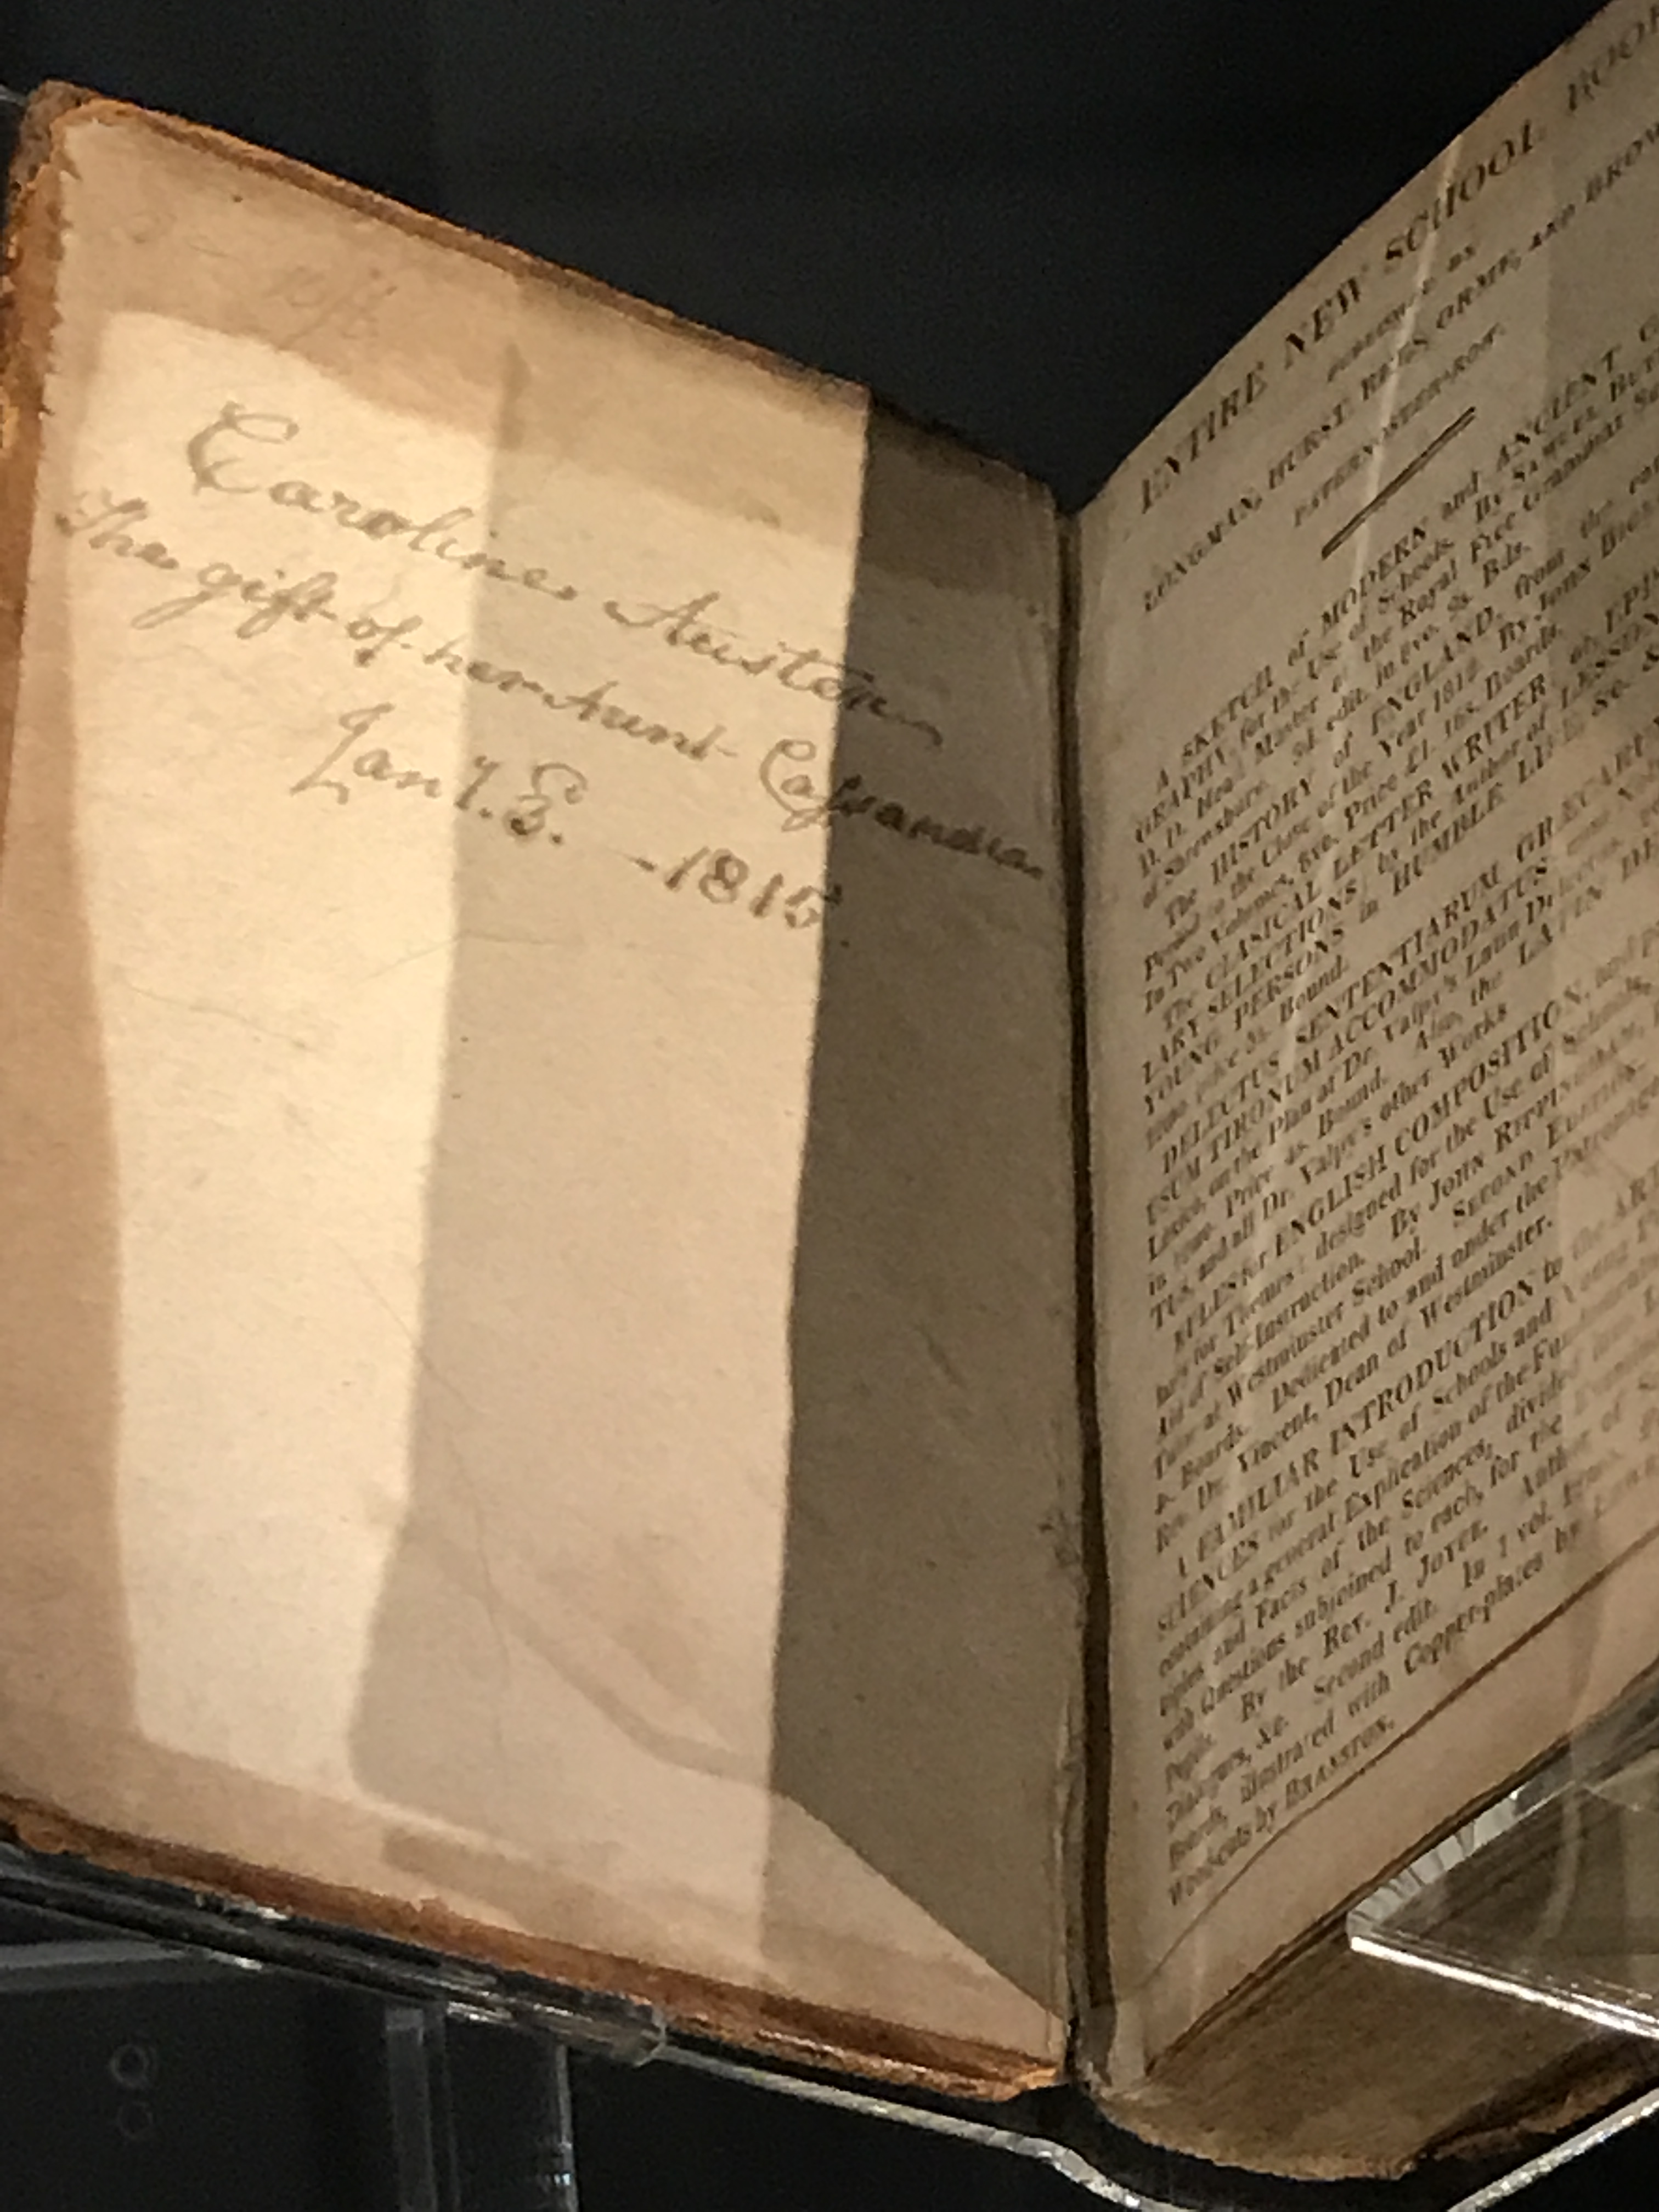 Caroline Austen
The gift of her Aunt Cassandra
Jany. 3. -1815
ENTIRE NEW SCHOOL BOOK
PUBLISHED BY
LONGMAN, HURST, REES, ORME, AND BROWN
PATERNOSTER-ROW.
A SKETCH of MODERN and ANCIENT
GRAPHY, for the Use of Schools. By SAMUEL
D. D. Head Master of the Royal Free Grammar
of Shrewsbury. 3d edit. in 8vo. 9s. Bds.
The HISTORY of ENGLAND, from the
Period to the Close of the Year 1812. By JOHN
In Two Volumes, 8vo. Price £1. 16s. Boards.
The CLASICAL LETTER WRITER; or,
LARY SELECTIONS; by the Author of LESSONS
YOUNG PERSONS in HUMBLE LIFE
12mo. price Bound.
DELECTUS SENTENTIARUM
USUM TIRONUM ACCOMMODATUS
on the Plan of Dr. Valpy's Latin Delectus,
in 12mo. Price 4s. Bound. Also, the LATIN
TUS, and all Dr. Valpy's other Works
for ENGLISH COMPOSITION, and
for Themes: designed for the Use of Schools,
Aid of Self-Instruction. By JOHN RIPPINGHAM,
Tutor at Westminster School. SECOND EDITION.
Boards. Dedicated to and under the Patronage
Rev. Dr. Vincent, Dean of Westminster.
A FAMILIAR INTRODUCTION to the
SCIENCES for the Use of Schools and Young
containing a general Explication of the
and Facts of the Sciences, divided into
with Questions subjoined to each, for the
Pupils. By the Rev. J. JOYCE, Author of
Dialogues, &c. Second edit. In 1 vol.
Boards, illustrated with Copper-plates by
Wood-cuts by BRANSTON.